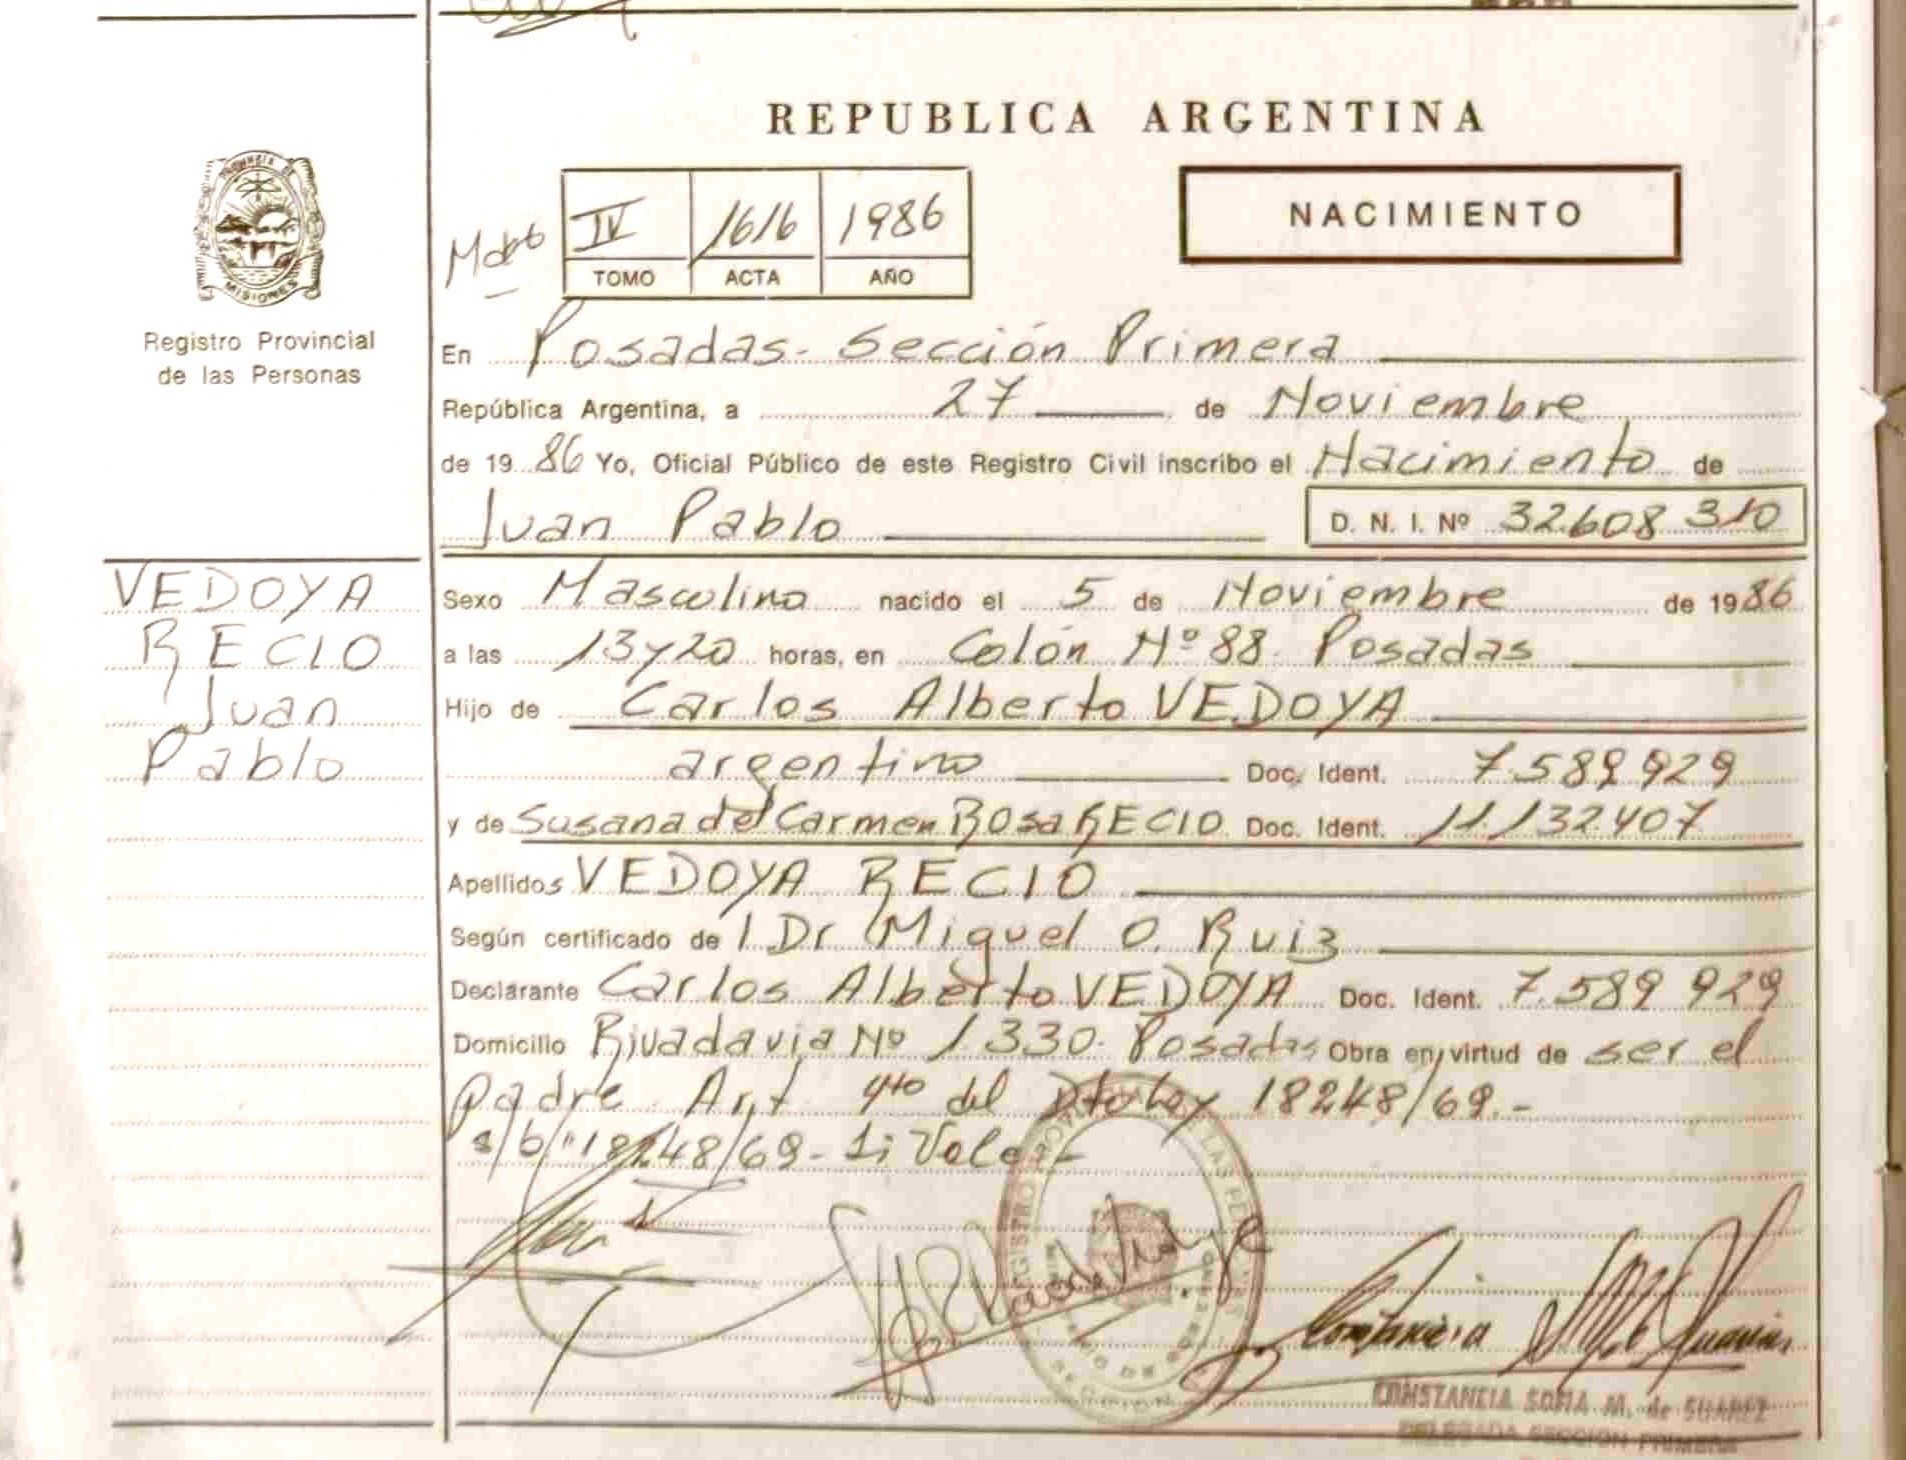 REPUBLICA ARGENTINA
PROVINCIA DE
MISIONES
Registro Provincial
de las Personas
IV 1616 1986
TOMO ACTA AÑO
NACIMIENTO
En Posadas- Sección Primera
República Argentina, a 27 de Noviembre
de 1986 Yo, Oficial Público de este Registro Civil inscribo el Nacimiento de
Juan Pablo D. N. I. Nº 32.608 310
VEDOYA
RECIO
Juan
Pablo
Sexo Masculino nacido el 5 de Noviembre de 1986
a las 13y20 horas, en Colón Nº 88. Posadas
Hijo de Carlos Alberto VEDOYA
argentino Doc. Ident. 7.589 929
y de Susana del Carmen Rosa RECIO Doc. Ident. 11.132407
Apellidos VEDOYA RECIO
Según certificado de l Dr Miguel O. Ruiz
Declarante Carlos Alberto VEDOYA Doc. Ident. 7.589 929
Domicilio Rivadavia Nº 1.330. Posadas Obra en virtud de ser el
padre. Art 4to del Dto Ley 18248/69.-
s/b "18248/69- Si Vale.-
CONSTANCIA SOFIA M. de SUAREZ
DELEGADA SECCION PRIMERA